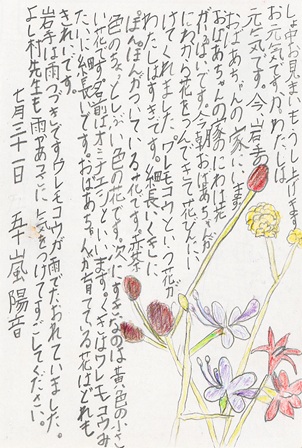 しょ中お見まいもうし上げます。
お元気ですか。わたしは
元気です。今、岩手の
おばあちゃんの家にいます。
おばあちゃんの家のにわは花
がいっぱいです。今朝おばあちゃんが
にわからかる花をつんできて花びんにい
けてくれました。ワレモコウという花が
わたしはすきです。細長いくきに
ぽんぽんがついている花です。赤茶
色のちょっとしぶい色の花です。次にすきなのは黄色の小さ
い花です。名前はオミナエシといいます。くきはワレモコウみ
たいに細長いです。おばあちゃんが育てている花はどれも
きれいです。
岩手は雨つづきです。ワレモコウが雨でたおれていました。
よし村先生も雨や「あつさ」に気をつけてすごしてください。
七月三十一日　五十嵐陽音